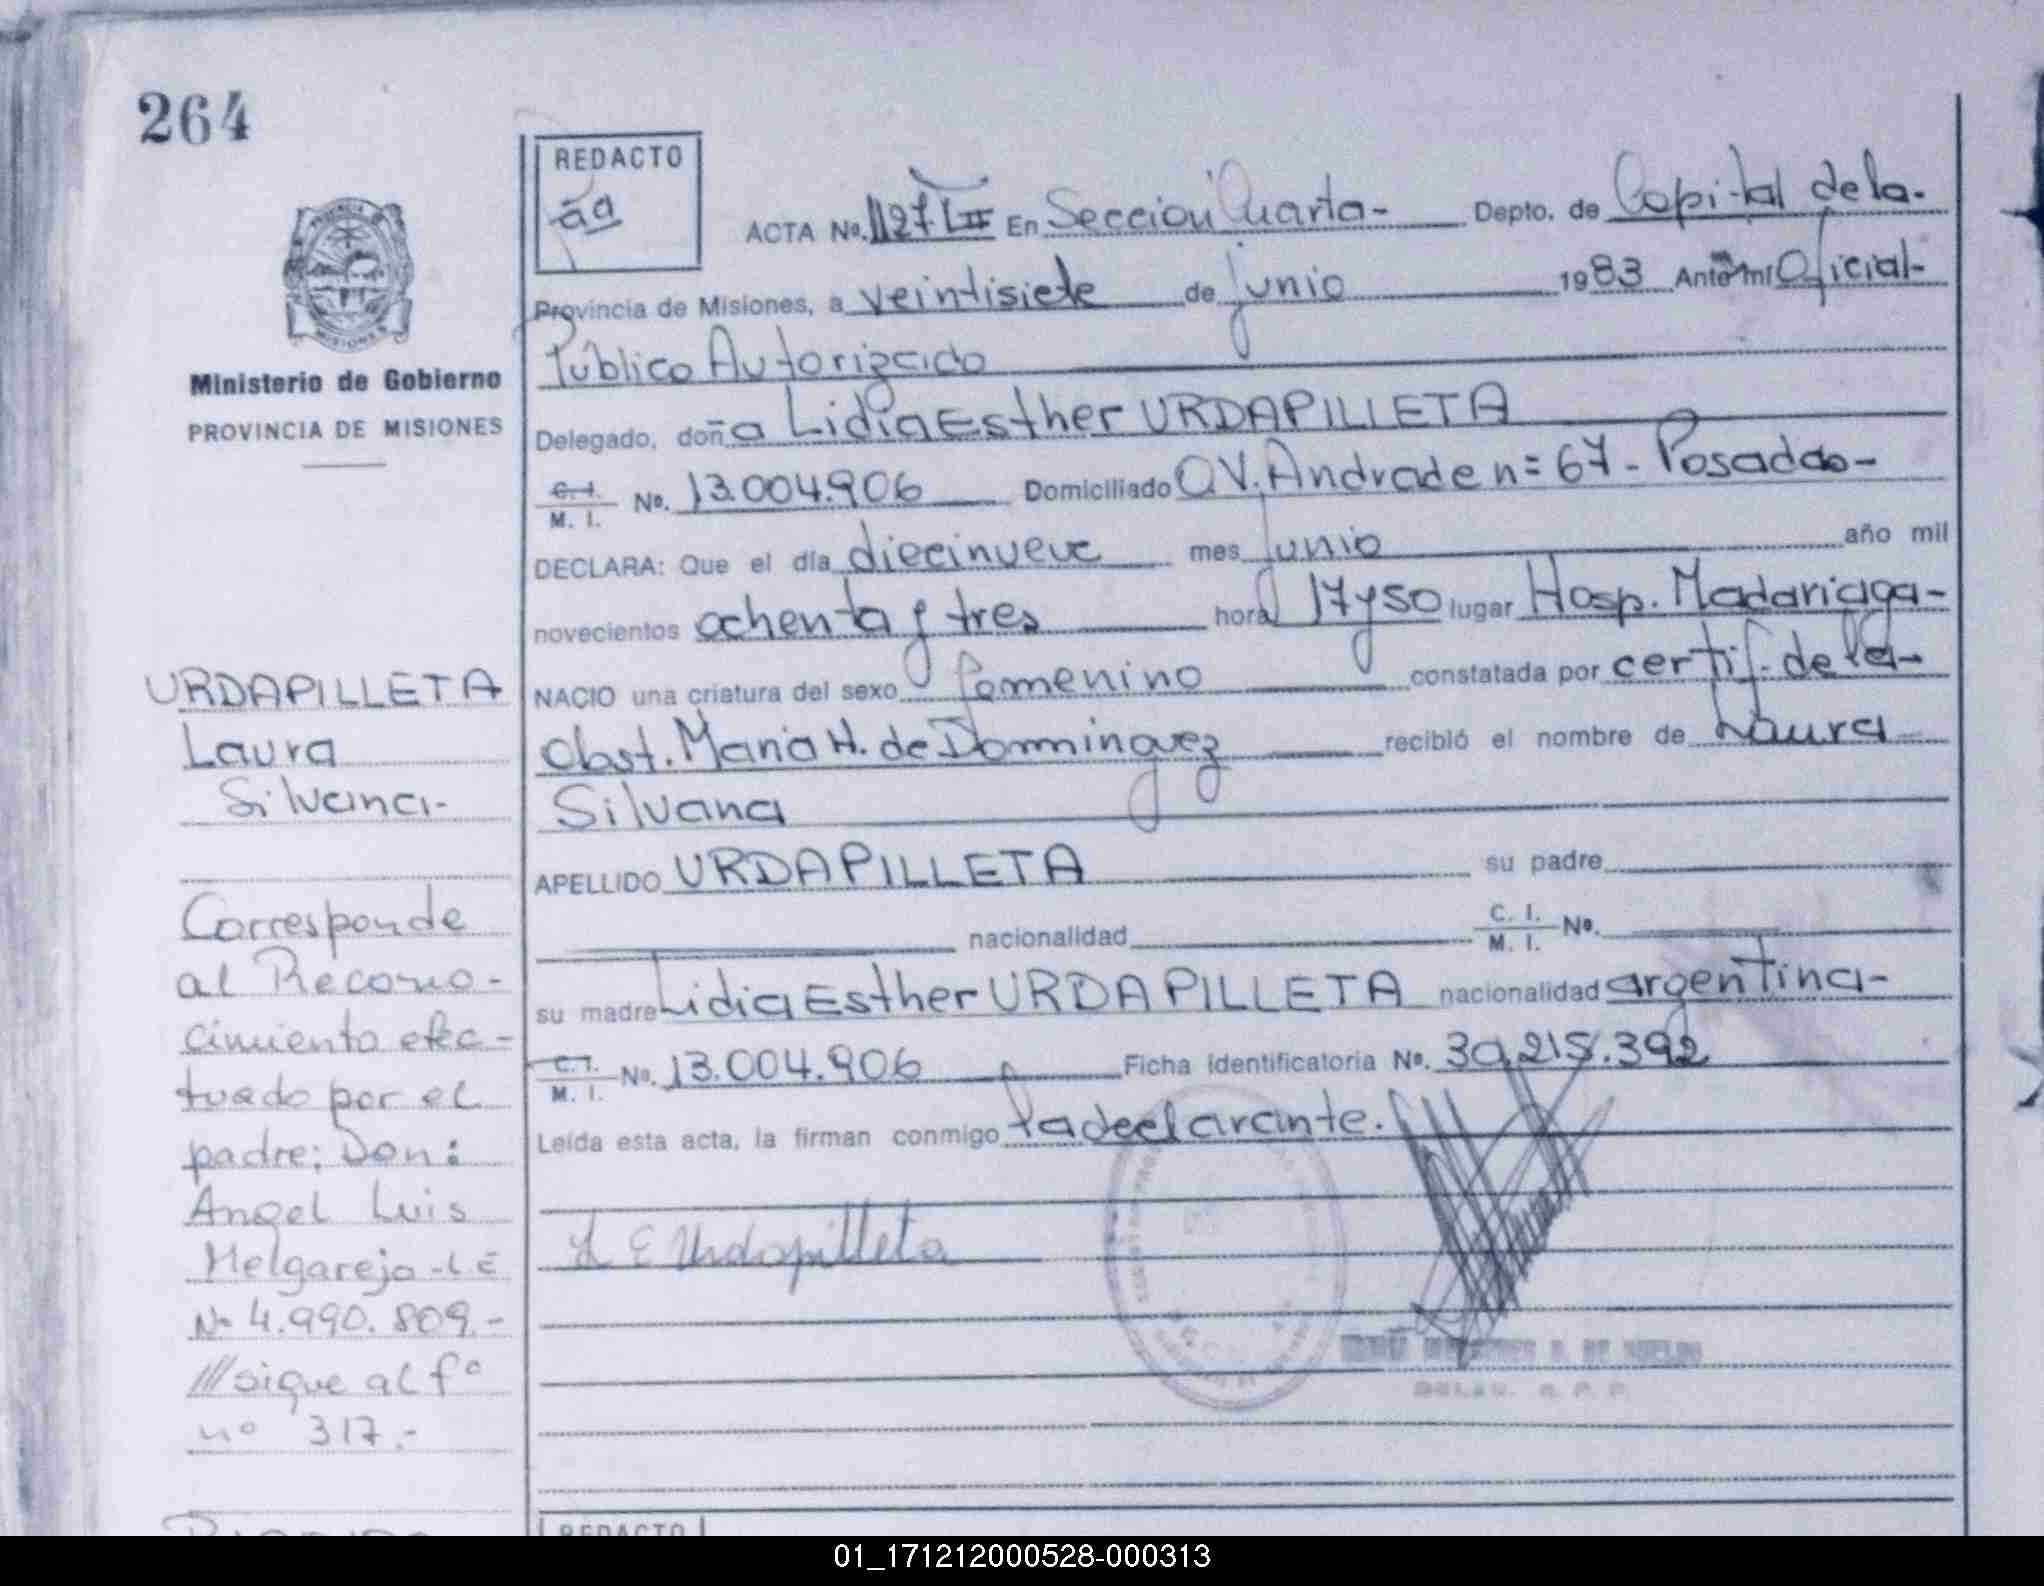 264
REDACTO
ACTA No. 1127 T III En Seccion Cuarta- Depto. de Capital de la-
Provincia de Misiones, a veintisiete de junio 1983 Ante mi Oficial-
Público Autorizado
Delegado, doña Lidia Esther URDAPILLETA
C. I. M. I. No. 13.004.906 Domiciliado O.V. Andrade n=67- Posadas-
DECLARA: Que el día diecinueve mes junio año mil
novecientos ochenta y tres hora 17 y 50 lugar Hosp. Madariaga-
NACIO una criatura del sexo femenino constatada por certif. de la-
Obst. Maria H. de Dominguez recibió el nombre de Laura
Silvana
APELLIDO URDAPILLETA su padre
nacionalidad C. I. M. I. No.
su madre Lidia Esther URDAPILLETA nacionalidad argentina-
C. I. M. I. No. 13.004.906 Ficha identificatoria No. 30.215.392
Leída esta acta, la firman conmigo la declarante.
L E Urdapilleta
PROVINCIA DE
MISIONES
Ministerio de Gobierno
PROVINCIA DE MISIONES
URDAPILLETA
Laura
Silvana-
Corresponde
al Recono-
cimiento efec-
tuado por el
padre; Don:
Angel Luis
Melgarejo-LE
Nº 4.990.809.-
///sigue al fº
nº 317.-
REDACTO
01_171212000528-000313